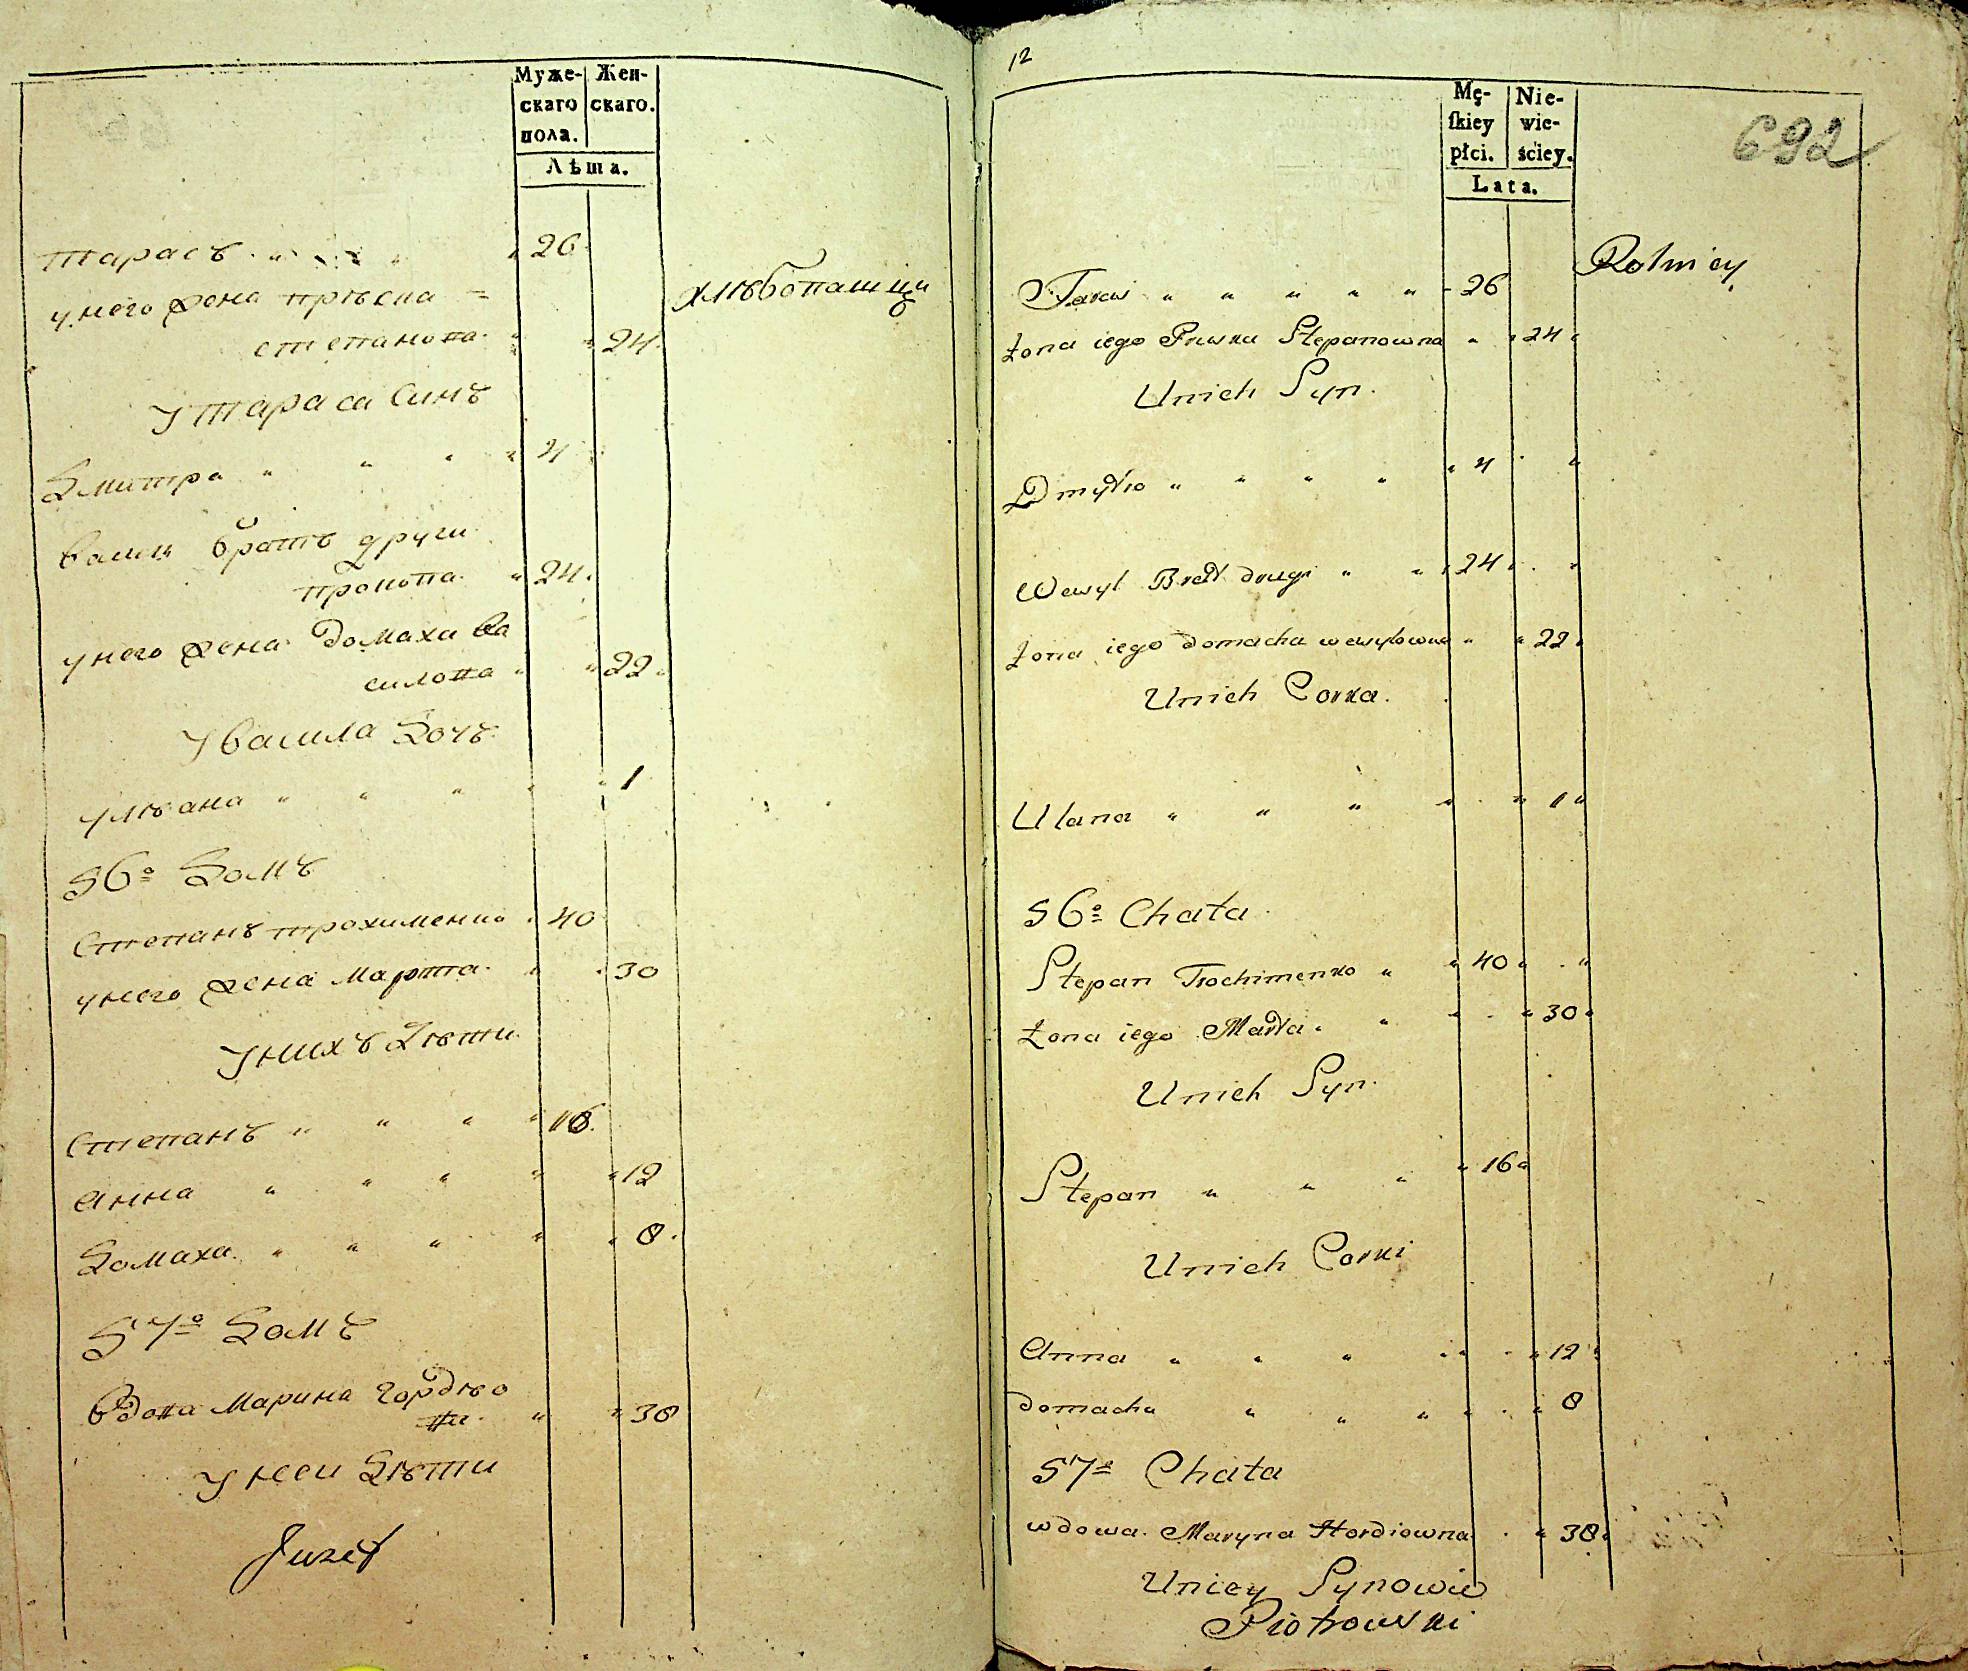 Муже- Жен-
скаго скаго.
пола.
Лѣта.
тарасъ 26
у него жена прѣска =
степанова 24
хлѣбопашци
У тараса Синъ
Дмитра 4
васил братъ други
прокопа 24
у него жена домаха ва
силова 22
У васила Дочъ
улѣана 1
56º Домъ
Степанъ трохименко 40
у него жена марта 30
У нихъ Дѣти
Степанъ 16
анна 12
Домаха 8
57º Домъ
вдова Марина Гордѣо
ва 38
У неи Дѣти
Juzef
12
Mę- Nie-
ſkiey wie-
płci. ściey.
Lata.
692
Rolnicy
Taras 26
żona iego Pryska Stepanowna 24
U nich Syn
Dmytro 4
Wasyl Brat drugi 24
żona iego domacha wasylowna 22
U nich Corka
Ulana 1
56º Chata
Stepan Trochimenko 40
żona iego Marta 30
U nich Syn
Stepan 16
U nich Corki
Anna 12
domacha 8
57º Chata
wdowa Maryna Hordiowna 38
U niey Synowie
Piotrowski